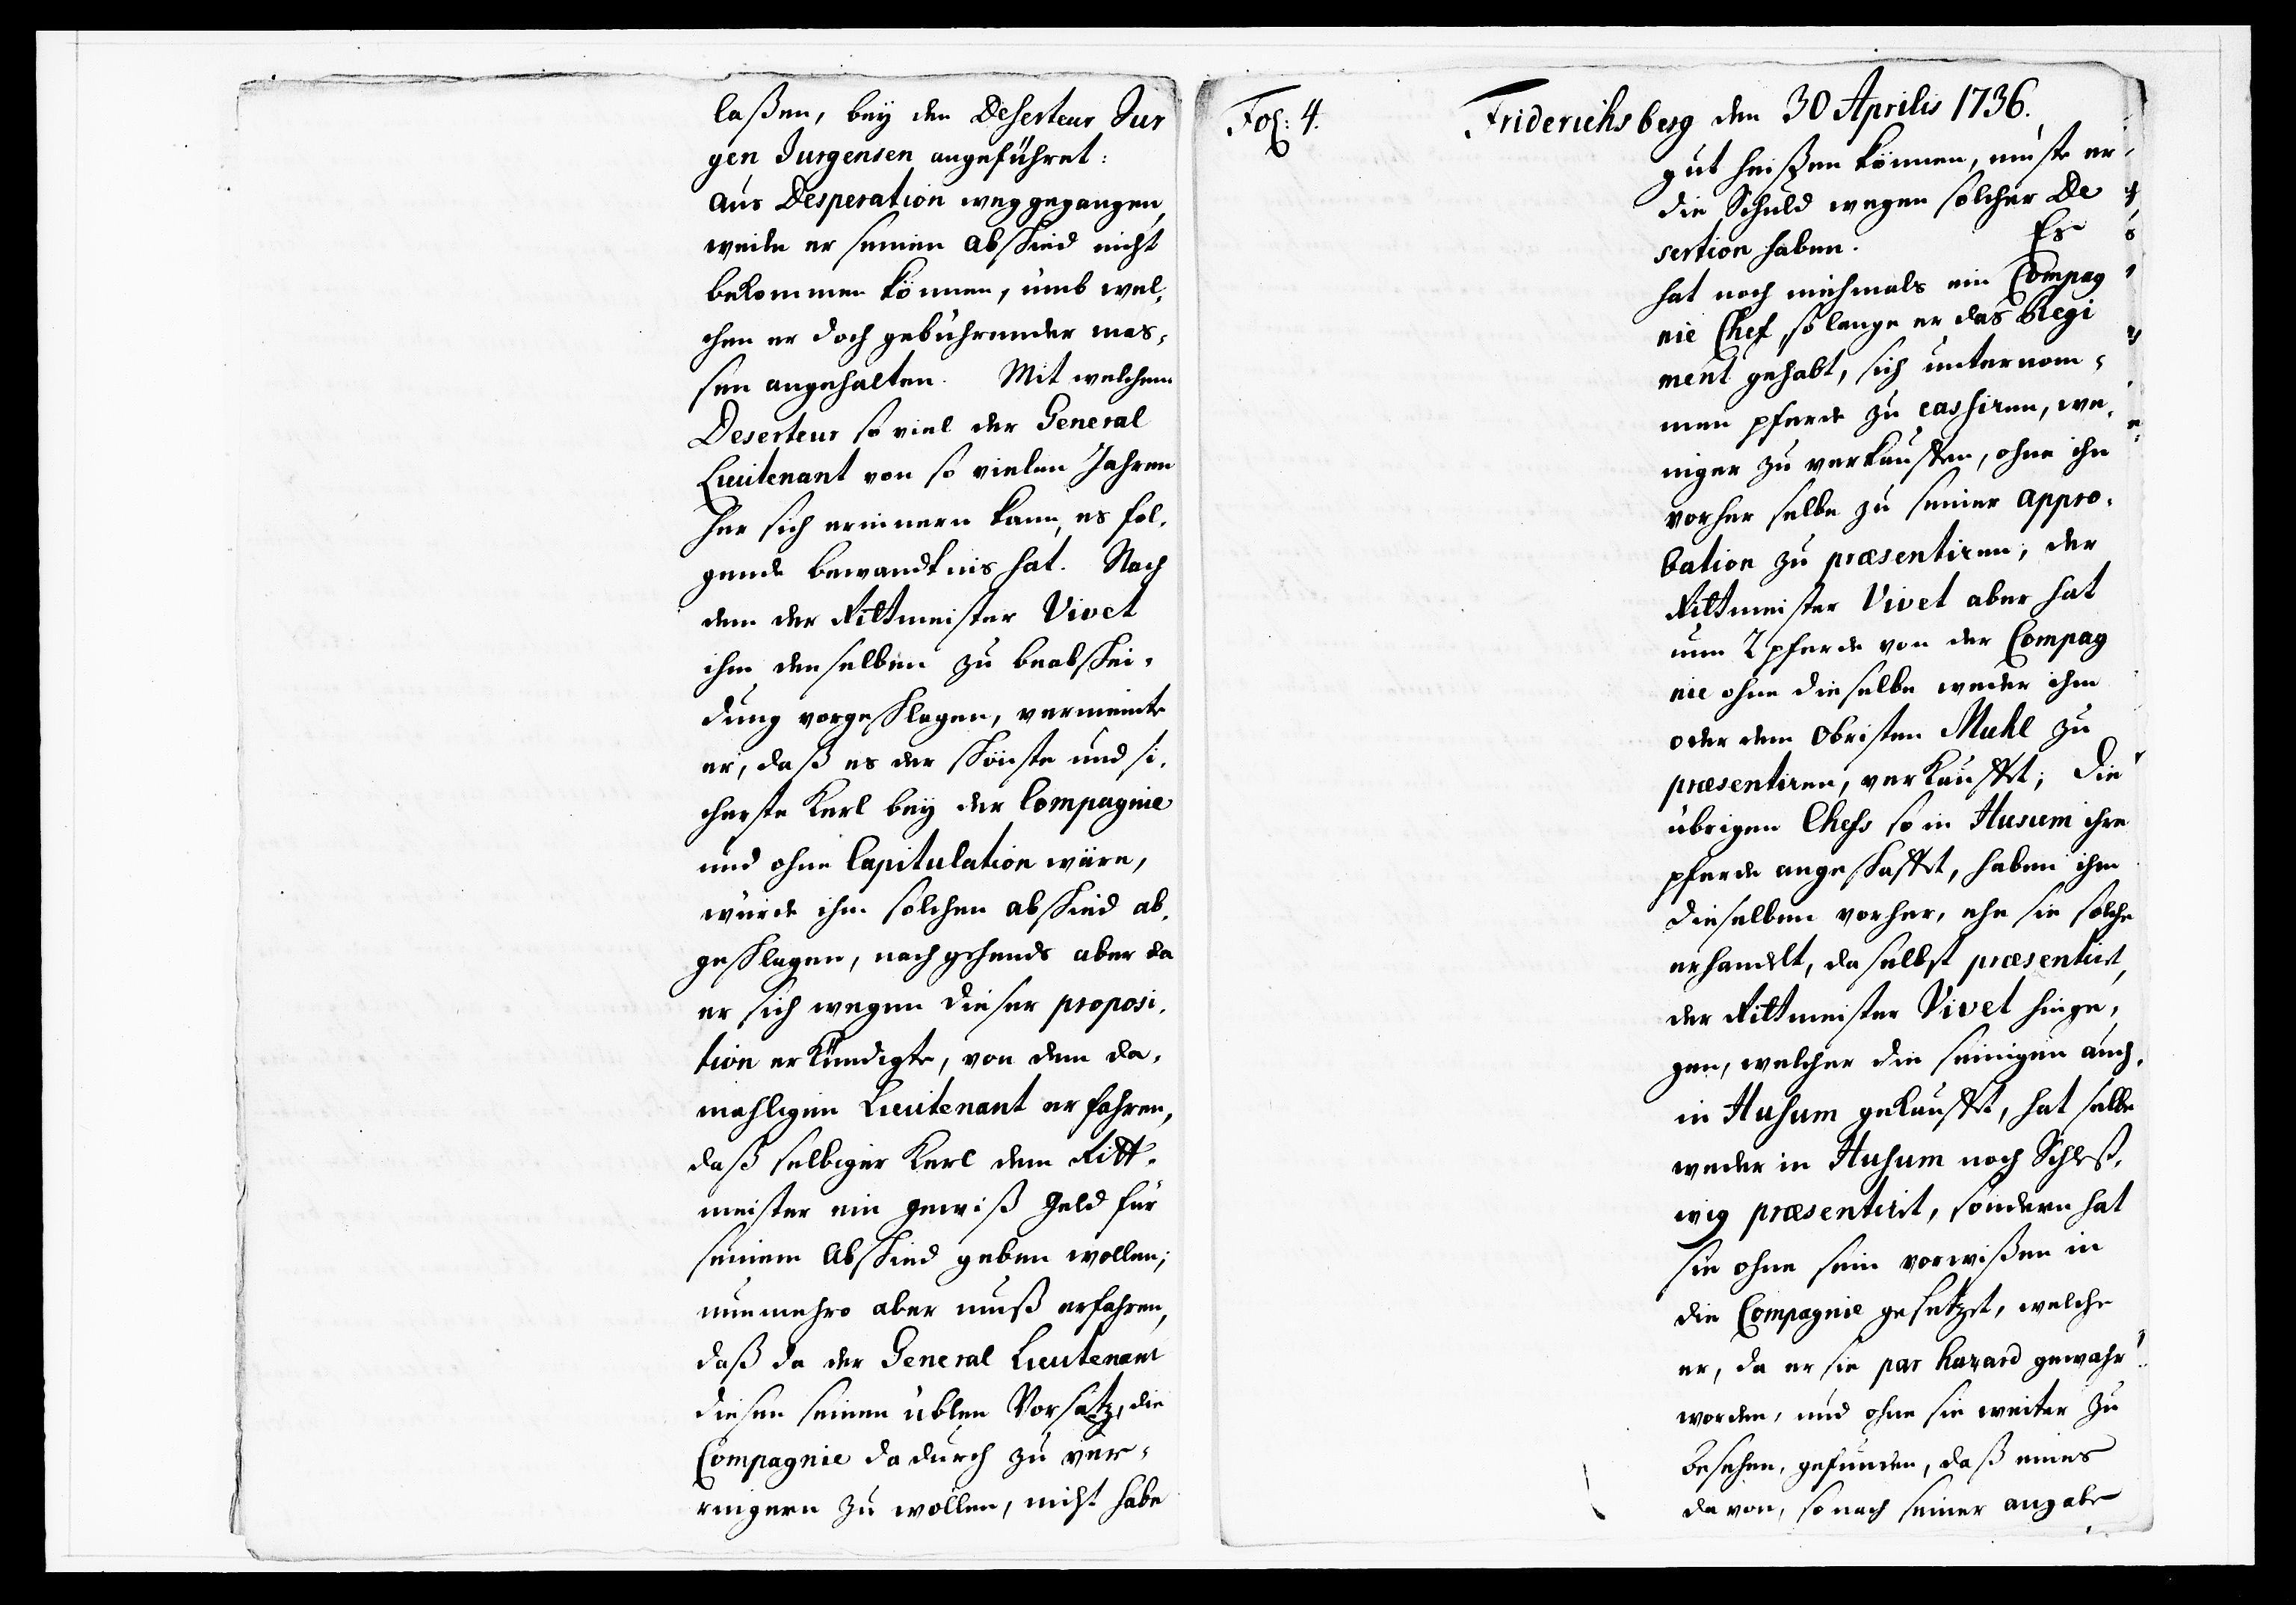 laßen, bey den Deserteur Jur
gen Jurgensen angeführet:
aus Desperation weggegangen,
weile er seinen abschied nicht
bekommen können, umb wel„
chen er doch gebührender mas„
sen angehalten. Mit welchem
Deserteur so viel der General
Lieutenant von so vielen Jahren
her sich erinnern kann, es fol„
gende bewandtnis hat. Nach
dem der Rittmeister Vivet
ihm denselben zu beabschei„
dung vorgeschlagen, vermeinte
er, daß es der schönste und si„
cherste Kerl bey der Compagnie
und ohne Capitulation wäre,
würde ihm solchen abschied ab„
geschlagen, nachgehends aber da
er sich wegen dieser proposi„
tion erkündigte, von dem da„
mahligen Lieutenant erfahren,
daß selbiger Kerl dem Ritt„
meister ein gewiß Geld für
seinem Abschied geben wollen;
nunmehro aber muß erfahren,
daß da der General Lieutenant
diesen seinen üblen Vorsatz, die
Compagnie dadurch zu ver„
ringern zu wollen, nicht habe
Fol: 4.
Friderichsberg den 30 Aprilis 1736.
gut heißen können, müste er
die Schuld wegen solcher De
sertion haben. Es
hat noch niehmals ein Compag
nie Chef, so lange er das Regi
ment gehabt, sich unternom„
men pferde zu cassiren, we„
niger zu verkauffen, ohne ihn
vorher selbe zu seiner appro„
bation zu præsentiren; der
Rittmeister Vivet aber hat
nun 2 pferde von der Compag
nie ohne dieselbe weder ihm
oder dem Obristen Muhl zu
præsentiren, verkaufft; Die
übrigen Chefs so in Husum ihre
pferde angeschafft, haben ihm
dieselben vorher, ehe sie solche
erhandelt, daselbst præsentirt,
der Rittmeister Vivet hinge„
gen, welcher die seinigen auch
in Husum gekaufft, hat selbe
weder in Husum noch Schleß„
wig præsentirt, sondern hat
sie ohne sein vorwißen in
die Compagnie gesetzet, welche
er, da er sie par hazard gewahr
worden, und ohne sie weiter zu
besehen, gefunden, daß eines
davon, so nach seiner angabe